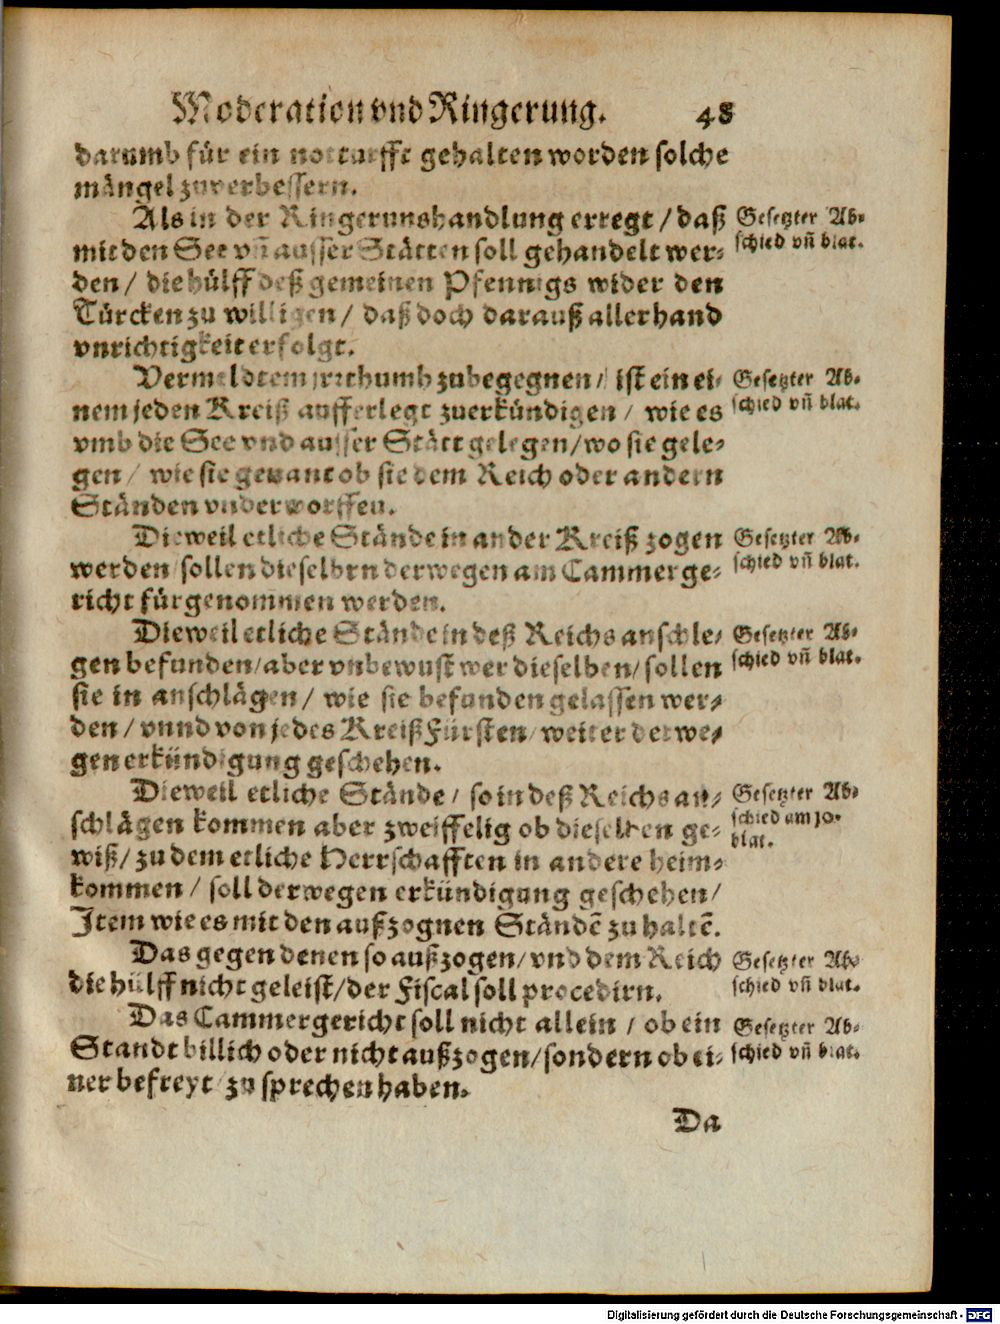 Moderation vnd Ringerung. 48
darumb für ein notturfft gehalten worden solche
mängel zuverbessern.
Als in der Ringerungshandlung erregt / daß
mit den See vñ ausser Stätten soll gehandelt wer-
den / die hülff deß gemeinen Pfennigs wider den
Türcken zu willigen / daß doch darauß allerhand
vnrichtigkeit erfolgt.
Gesetzter Ab-
schied vñ blat.
Vermeldtem jrrthumb zubegegnen / ist ein ei-
nem jeden Kreiß aufferlegt zuerkündigen / wie es
vmb die See vnd ausser Stätt gelegen / wo sie gele-
gen / wie sie gewant ob sie dem Reich oder andern
Ständen vnderworffen.
Gesetzter Ab-
schied vñ blat.
Dieweil etliche Stände in ander Kreiß zogen
werden / sollen dieselben derwegen am Cammerge-
richt fürgenommen werden.
Gesetzter Ab-
schied vñ blat.
Dieweil etliche Stände in deß Reichs anschle-
gen befunden / aber vnbewust wer dieselben / sollen
sie in anschlägen / wie sie befunden gelassen wer-
den / vnnd von jedes Kreiß Fürsten / weiter derwe-
gen erkündigung geschehen.
Gesetzter Ab-
schied vñ blat.
Dieweil etliche Stände / so in deß Reichs an-
schlägen kommen aber zweiffelig ob dieselben ge-
wiß / zu dem etliche Herrschafften in andere heim-
kommen / soll derwegen erkündigung geschehen /
Item wie es mit den außzognen Ständẽ zu haltẽ.
Gesetzter Ab-
schied am 10.
blat.
Das gegen denen so außzogen / vnd dem Reich
die hülff nicht geleist / der Fiscal soll procedirn.
Gesetzter Ab-
schied vñ blat.
Das Cammergericht soll nicht allein / ob ein
Standt billich oder nicht außzogen / sondern ob ei-
ner befreyt / zu sprechen haben.
Gesetzter Ab-
schied vñ blat.
Da
Digitalisierung gefördert durch die Deutsche Forschungsgemeinschaft - DFG